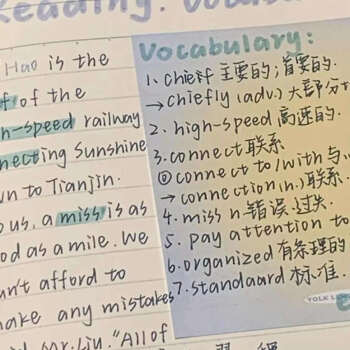 Reading.
Hao is the
of the
speed railway
necting Sunshine
wn to Tianjin.
us, a miss is as
od as a mile. We
n't afford to
make any mistakes
Mr. Liu. "All of
Vocabulary:
1. chieff 主要的；首要的.
→chiefly (adv.) 大部分
2. high-speed 高速的.
3. connect 联系
② connect to/with 与
→ connection (n.) 联系.
4. miss n. 错误.过失.
5. pay attention to
6. organized 有条理的
7. standaard 标准.